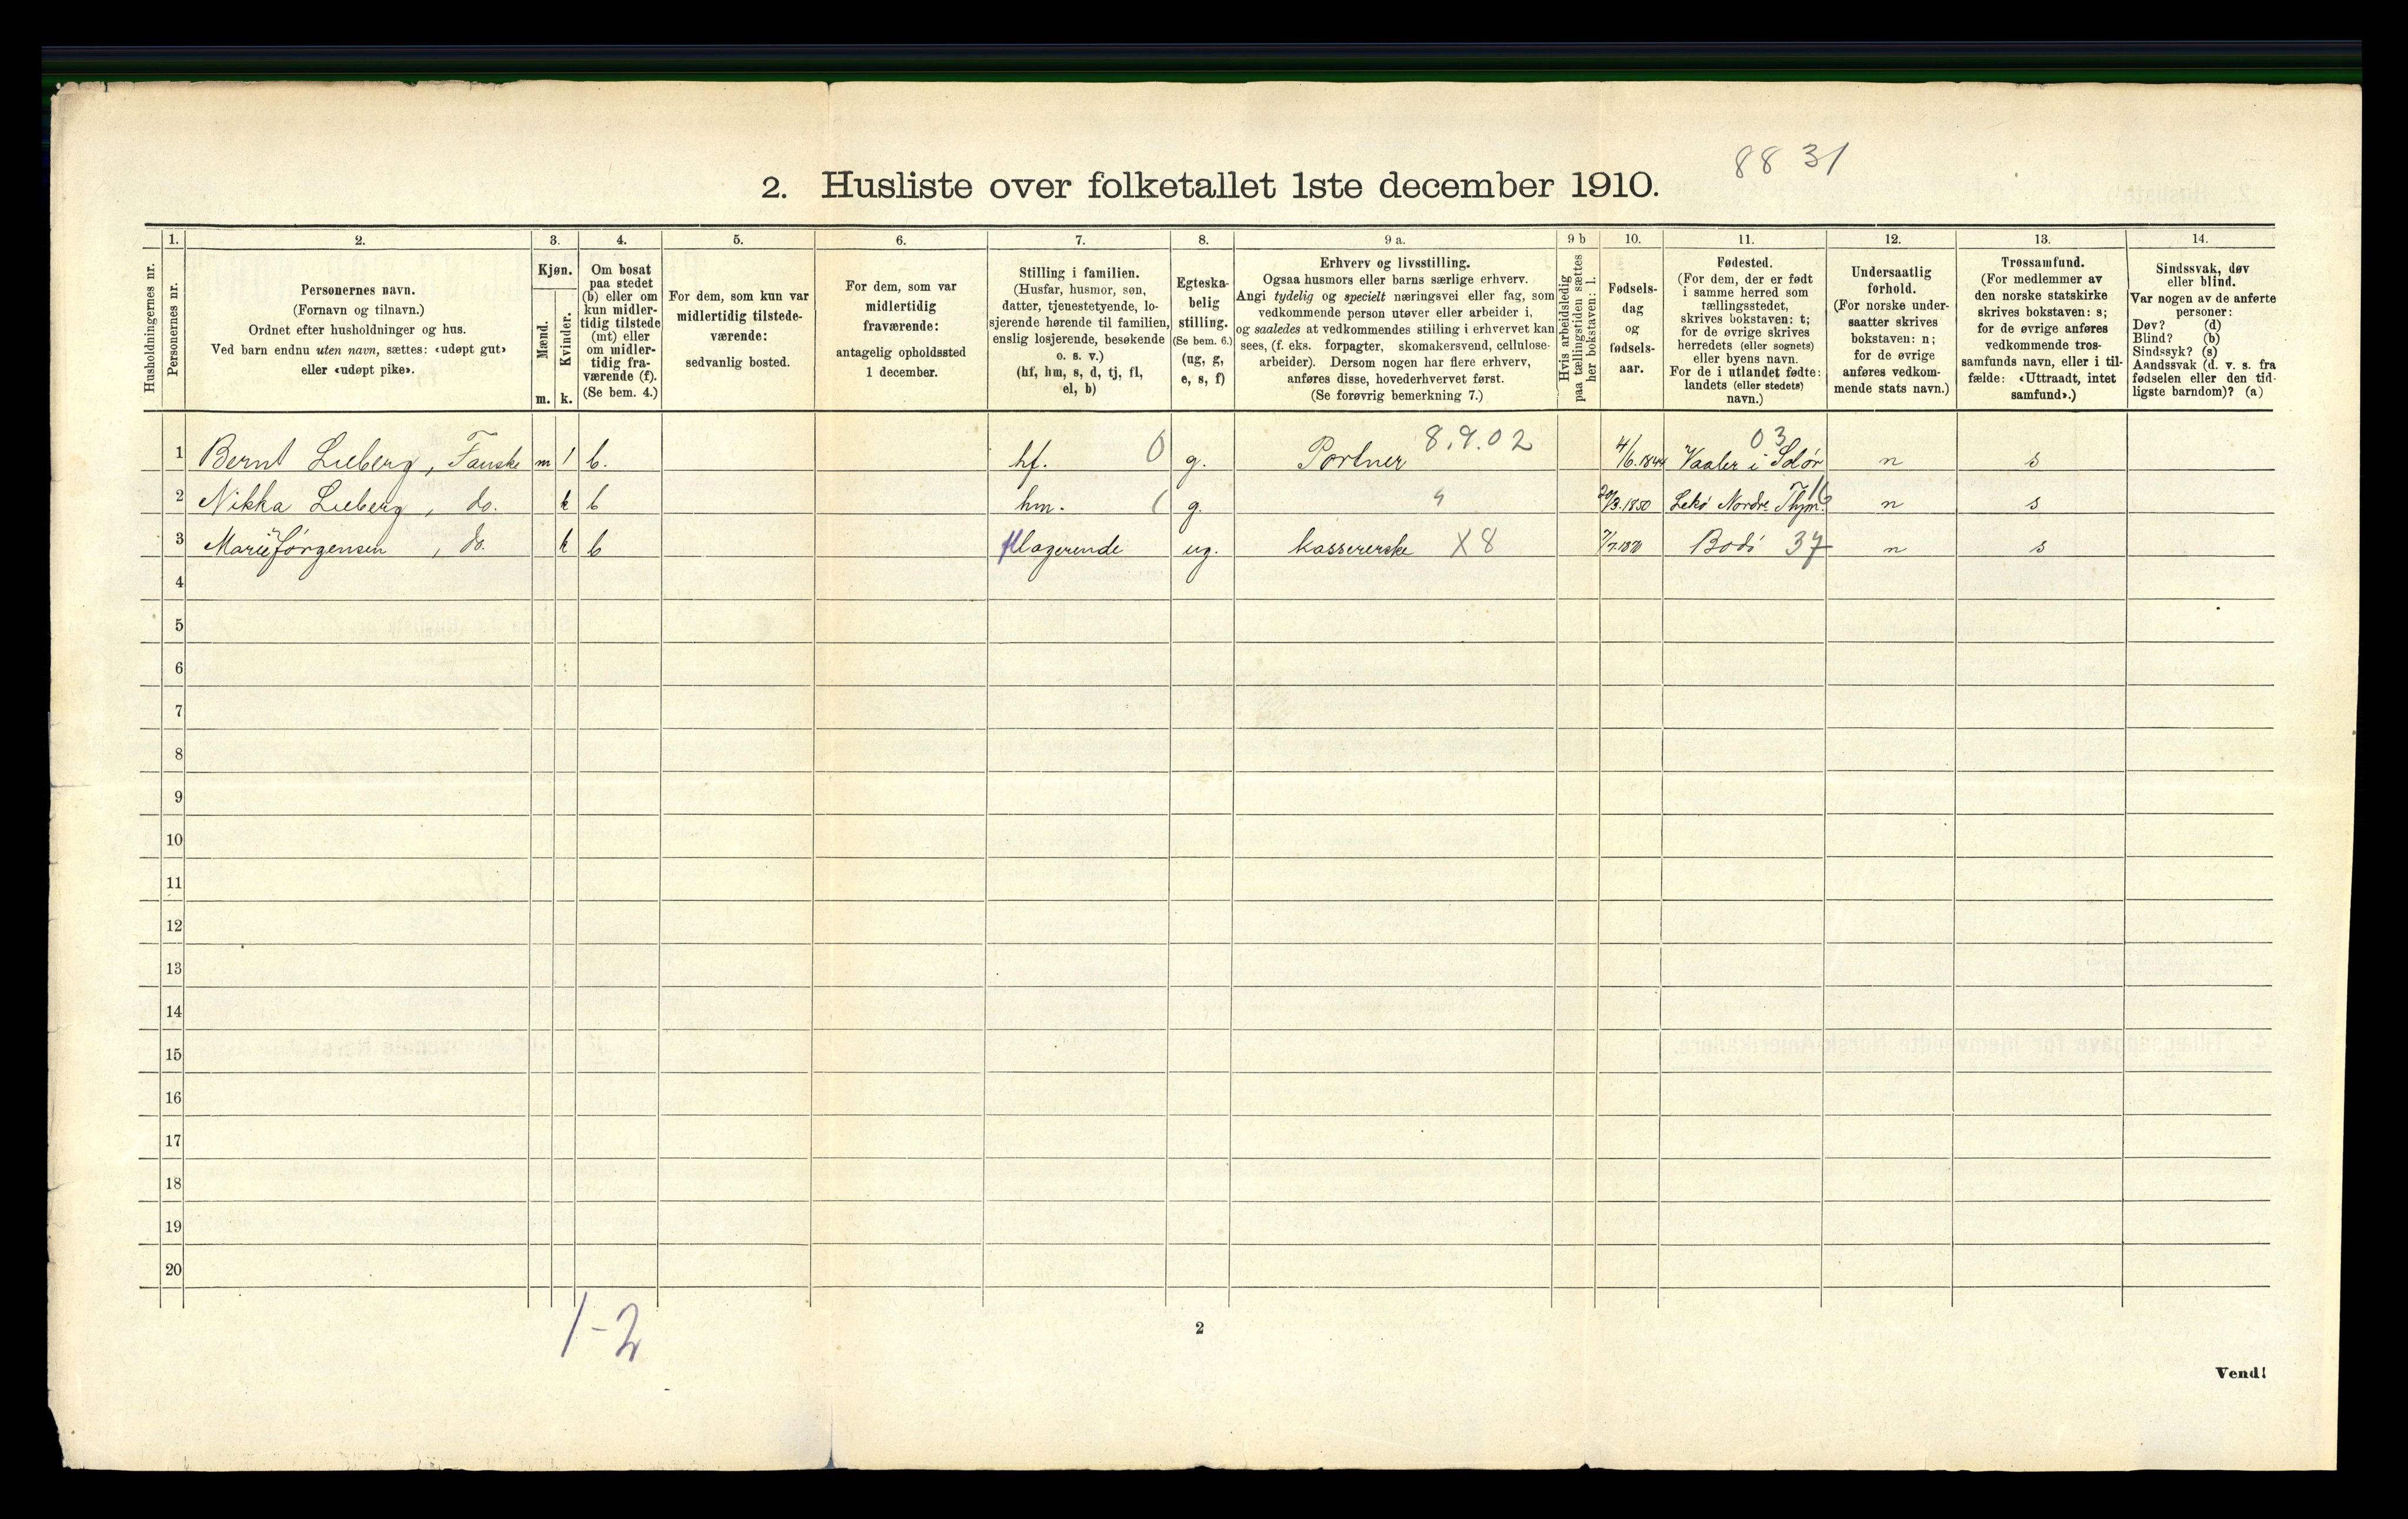 88 31
2. Husliste over folketallet 1ste december 1910.
1. 2. 3. 4. 5. 6. 7. 8. 9 a. 9 b 10. 11. 12. 13. 14.
Husholdningernes nr.
Personernes nr.
Personernes navn.
(Fornavn og tilnavn.)
Ordnet efter husholdninger og hus.
Ved barn endnu uten navn, sættes: «udøpt gut»
eller «udøpt pike».
Kjøn.
Mænd.
Kvinder.
m. k.
Om bosat
paa stedet
(b) eller om
kun midler-
tidig tilstede
(mt) eller
om midler-
tidig fra-
værende (f).
(Se bem. 4.)
For dem, som kun var
midlertidig tilstede-
værende:
sedvanlig bosted.
For dem, som var
midlertidig
fraværende:
antagelig opholdssted
1 december.
Stilling i familien.
(Husfar, husmor, søn,
datter, tjenestetyende, lo-
sjerende hørende til familien,
enslig losjerende, besøkende
o. s. v.)
(hf, hm, s, d, tj, fl,
el, b)
Egteska-
belig
stilling.
(Se bem. 6.)
(ug, g,
e, s, f)
Erhverv og livsstilling.
Ogsaa husmors eller barns særlige erhverv.
Angi tydelig og specielt næringsvei eller fag, som
vedkommende person utøver eller arbeider i,
og saaledes at vedkommendes stilling i erhvervet kan
sees, (f. eks. forpagter, skomakersvend, cellulose-
arbeider). Dersom nogen har flere erhverv,
anføres disse, hovederhvervet først.
(Se forøvrig bemerkning 7.)
Hvis arbeidsledig
paa tællingstiden sættes
her bokstaven: l.
Fødsels-
dag
og
fødsels-
aar.
Fødested.
(For dem, der er født
i samme herred som
tællingsstedet,
skrives bokstaven: t;
for de øvrige skrives
herredets (eller sognets)
eller byens navn.
For de i utlandet fødte:
landets (eller stedets)
navn.)
Undersaatlig
forhold.
(For norske under-
saatter skrives
bokstaven: n;
for de øvrige
anføres vedkom-
mende stats navn.)
Trossamfund.
(For medlemmer av
den norske statskirke
skrives bokstaven: s;
for de øvrige anføres
vedkommende tros-
samfunds navn, eller i til-
fælde: «Uttraadt, intet
samfund».)
Sindssvak, døv
eller blind.
Var nogen av de anførte
personer:
Døv? (d)
Blind? (b)
Sindssyk? (s)
Aandssvak (d. v. s. fra
fødselen eller den tid-
ligste barndom)? (a)
1 Bernt Lieberg, Fauske m 1 b. hf. 0 g. Portner 8.9.02 4/6.1844 Vaaler i Solør 03 n s
2 Nikka Lieberg, do. k b hm. g. 20/3.1850 Lekø Nordre Thjm. 16 n s
3 Marie Jørgensen, do. k b fl logerende ug. kassererske X8 7/7.1870 Bodø 37 n s
4
5
6
7
8
9
10
11
12
13
14
15
16
17
18
19
20
1-2
2
Vend!